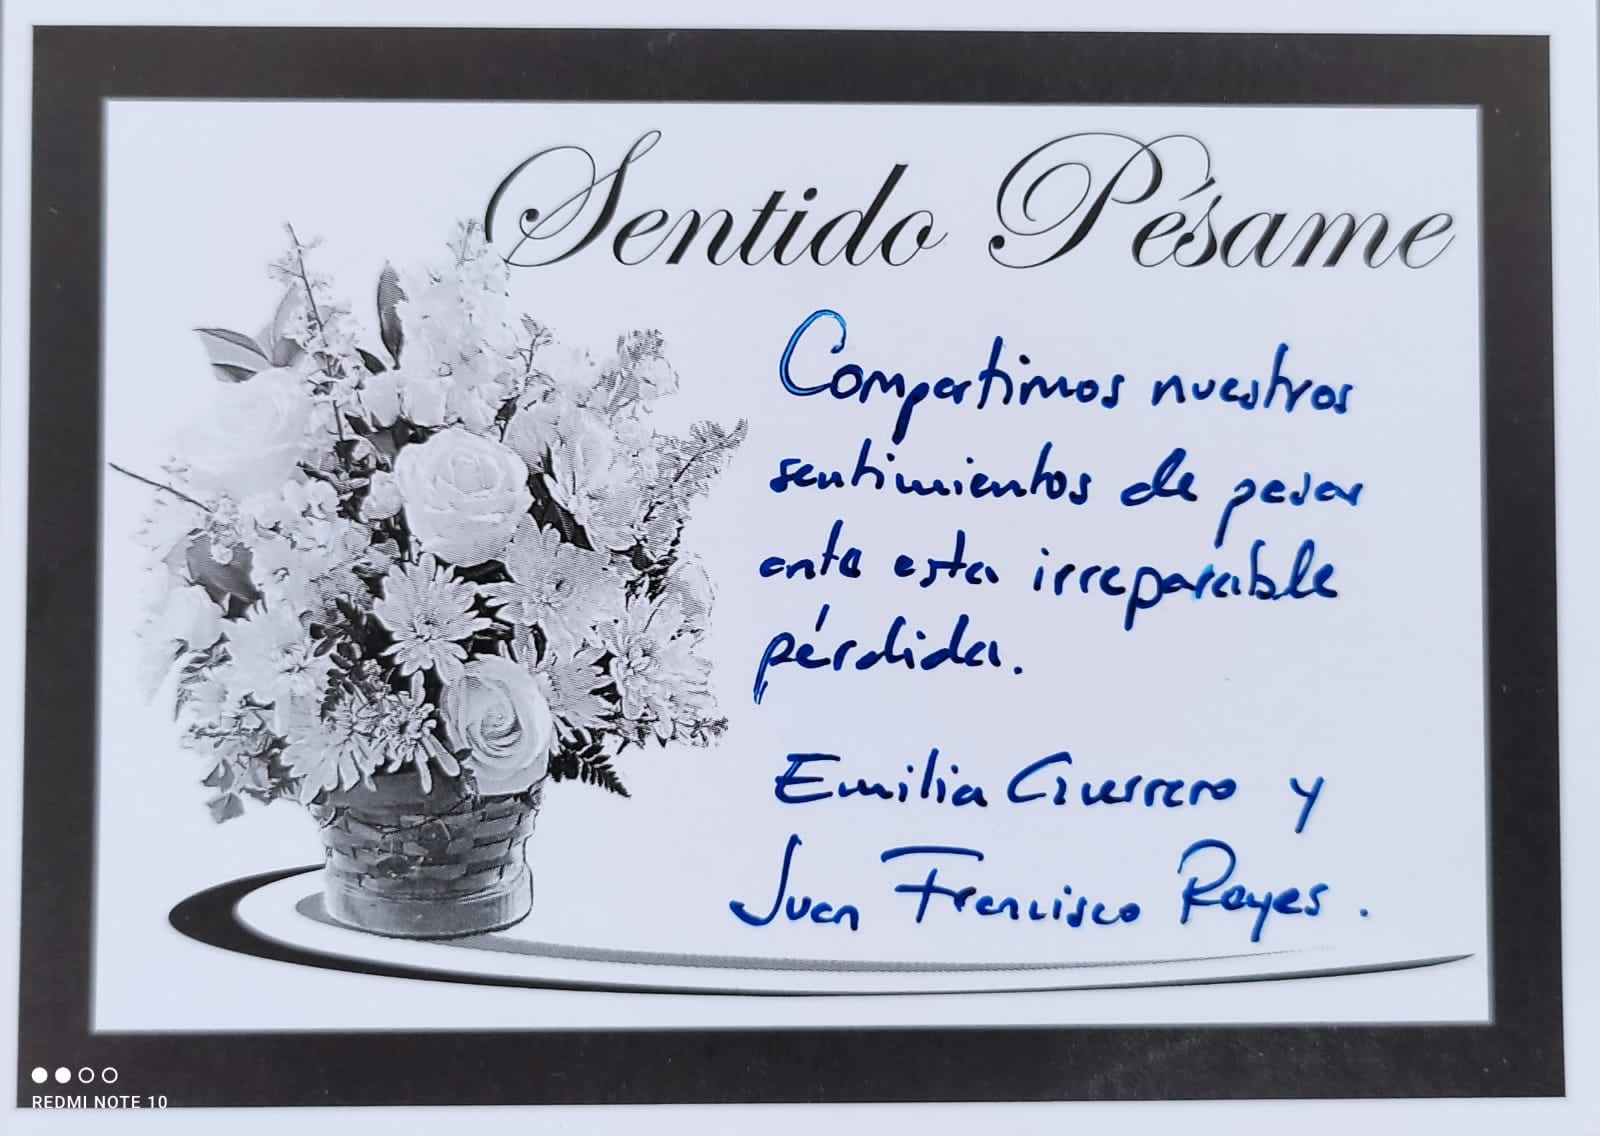 Sentido Pésame
Compartimos nuestros
sentimientos de pesar
ante esta irreparable
pérdida.
Emilia Guerrero y
Juan Francisco Reyes.
REDMI NOTE 10